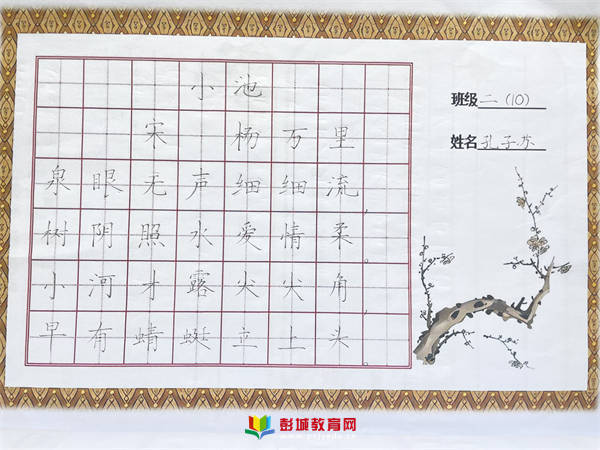 小池
宋 杨万里
泉眼无声细细流，
树阴照水爱情柔。
小河才露尖尖角，
早有蜻蜓立上头。
班级 二（10）
姓名 孔子苏
彭城教育网